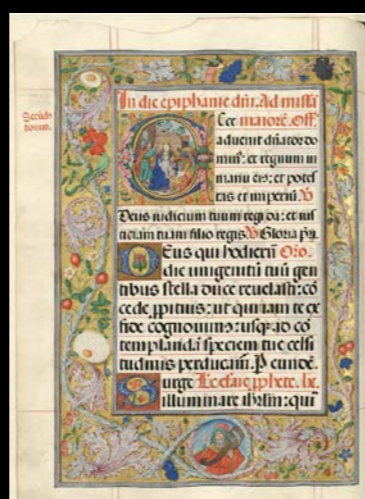 In die epiphanie dñi. Ad missã
Cce maiorē. Off.
aduenit dñator do
minꝰ: et regnum in
manu eiꝰ: et potes
tas et imperiũ. V
Deus iudicium tuum regi da: et ius
ticiam tuam filio regis. V Gloria pr̃i.
Eus qui hodiern̄ Oro.
die unigenitũ tuũ gen
tibus stella duce reuelasti: cō
cede ꝓpitiꝰ: ut qui iam te ex
fide cognouimꝰ: usqꝫ ad cō
templandã speciem tue celsi
tudinis perducam̃. P eundē.
urge Le. esaie ꝓphete. lx.
illuminare ihrlm: qui